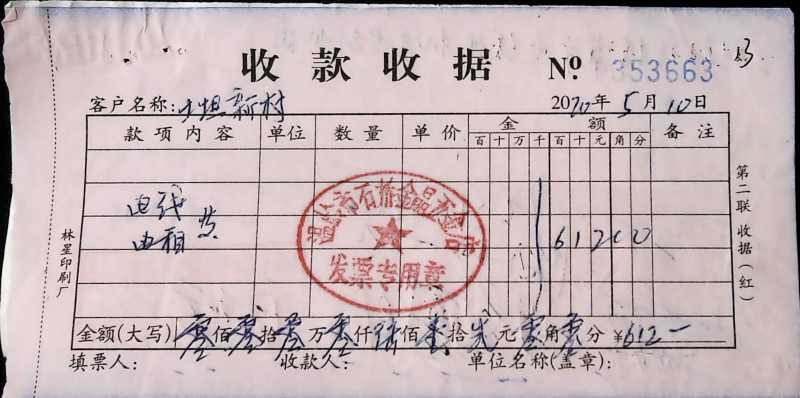 收款收据 № 353663
客户名称:上担新村 2020年5月10日
款项内容 单位 数量 单价 金额 备注
百 十 万 千 百 十 元 角 分
电线
电箱 61200
发票专用章
金额(大写) 零佰零拾零万零仟陆佰壹拾 元零角零分 ¥612—
填票人: 收款人: 单位名称(盖章):
林星印刷厂
第二联 收据(红)